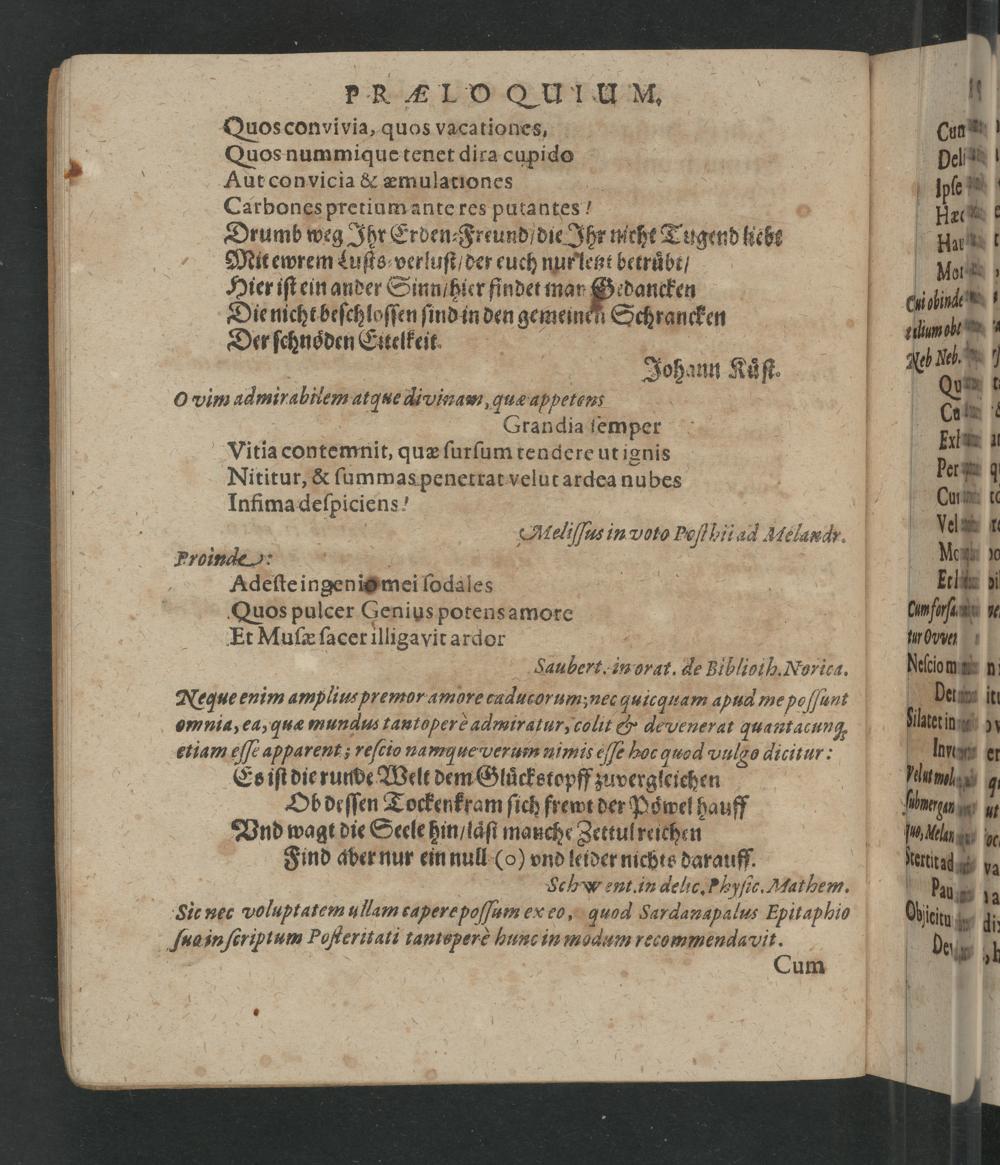 PRÆLOQUIUM.
Quos convivia, quos vacationes,
Quos nummique tenet dira cupido
Aut convicia & æmulationes
Carbones pretium ante res putantes!
Drumb weg Ihr Erden-Freund/die Ihr nicht Tugend liebt
Mit ewrem Lusts-verlust/der euch nur lent betrübt/
Hier ist ein ander Sinn/hier findet man Gedancken
Die nicht beschlossen sind in den gemeinen Schrancken
Der schnöden Eitelkeit.
Johann Rüst.
O vim admirabilem atque divinam, quæ appetens
Grandia ſemper
Vitia contemnit, quæ ſurſum tendere ut ignis
Nititur, & ſummas penetrat velut ardea nubes
Infima deſpiciens!
Meliſſus in voto Poſthii ad Melandr.
Proinde:
Adeſte ingenio mei ſodales
Quos pulcer Genius potens amore
Et Muſæ ſacer illigavit ardor
Saubert. in orat. de Biblioth. Norica.
Neque enim amplius premor amore caducorum; nec quicquam apud me poſſunt
omnia, ea, quæ mundus tantoperè admiratur, colit & devenerat quantacunq;
etiam eſſe apparent; reſcio namque verum nimis eſſe hoc quod vulgo dicitur:
Es ist die runde Welt dem Glückstopff zuvergleichen
Ob dessen Tockenkram sich frewt der Pöwel hauff
Vnd wagt die Seele hin/läst manche Zettul reichen
Find aber nur ein null (0) vnd leider nichts darauff.
Schwent. in delic. Phyſic. Mathem.
Sic nec voluptatem ullam capere poſſum ex eo, quod Sardanapalus Epitaphio
ſuo inſcriptum Poſteritati tantoperè hunc in modum recommendavit.
Cum